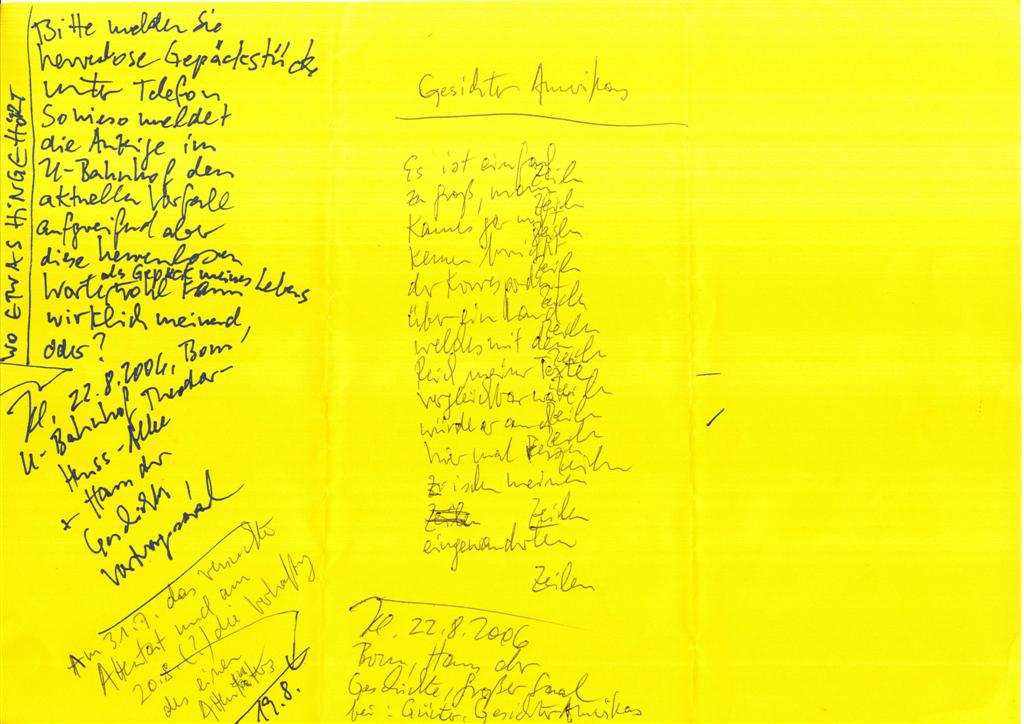 WO ETWAS HINGEHÖRT
Bitte melden Sie
herrenlose Gepäckstücke
unter Telefon
Sowieso meldet
die Anzeige im
U-Bahnhof den
aktuellen Vorfall
aufgreifend aber
diese herrenlosen
als Gepäck meines Lebens
Worte wohl kaum
wirklich meinend,
oder?
22.8.2006, Bonn,
U-Bahnhof Theodor-
Heuss-Allee
+ Haus der
Geschichte,
Vortragssaal
Am 31.7. das versuchte
Attentat und am
20.8 (?) die Verhaftg
des einen
Attentäters
19.8.
Gesichter Amerikas
Es ist einfach
Zeilen
zu groß, man
Zeilen
kann es gar nicht
Zeilen
kennen
Zeilen
der Korrespondent
Zeilen
über ein Land
Zeilen
welches mit dem
Zeilen
Reich meiner Texte
vergleichbar wäre
Zeilen
würde er
Zeilen
hier mal
Zeilen
zwischen meinen
Zeilen Zeilen
eingewanderten
Zeilen
22.8.2006
Bonn, Haus der
Geschichte, Großer Saal
bei: Gesichter Amerikas